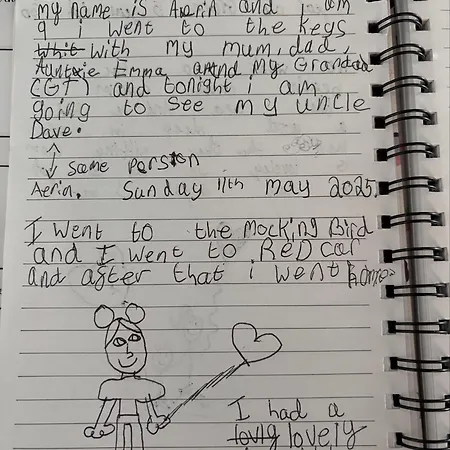 my name is Aerin and I am
9 i went to the Keys
Whit with my mum, dad,
Auntxie Emma and My Grandad
(GT) and tonight i am
going to see my uncle
Dave.
some person
Aerin. Sunday 11th may 2025.
I went to the Mocking Bird
and I went to Redcar
and after that i went home.
I had a
lovly lovely